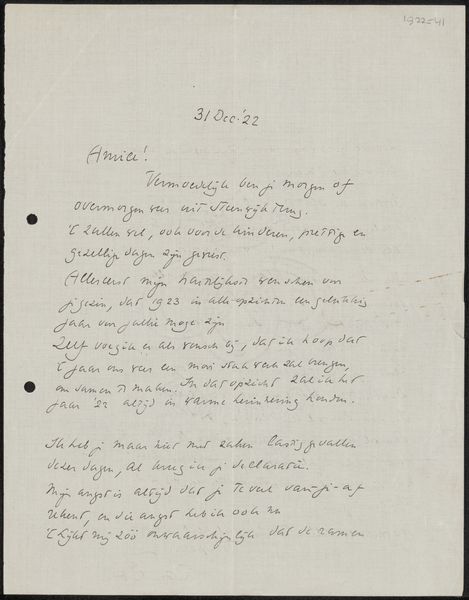 1922-41
31 Dec '22
Amice!
Vermoedelijk ben je morgen of
overmorgen weer uit Steenwijk terug.
't zullen wel, ook voor de kinderen, prettige en
gezellige dagen zijn geweest.
Allereerst mijn hartelijkste wenschen voor
je gezin, dat 1923 in alle opzichten een gelukkig
jaar voor jullie moge zijn
Zelf voeg ik er als wensch bij, dat ik hoop dat
't jaar ons weer een mooi stuk werk zal brengen,
om samen te maken. In dat opzicht zal ik het
jaar '22 altijd in warme herinnering houden.
Ik heb je maar niet met zaken lastig gevallen
dezer dagen, al kreeg ik je declaratie.
Mijn angst is altijd dat je te veel van-je-af
rekent, en die angst heb ik ook nu
't lijkt mij zóó onwaarschijnlijk dat de ramen